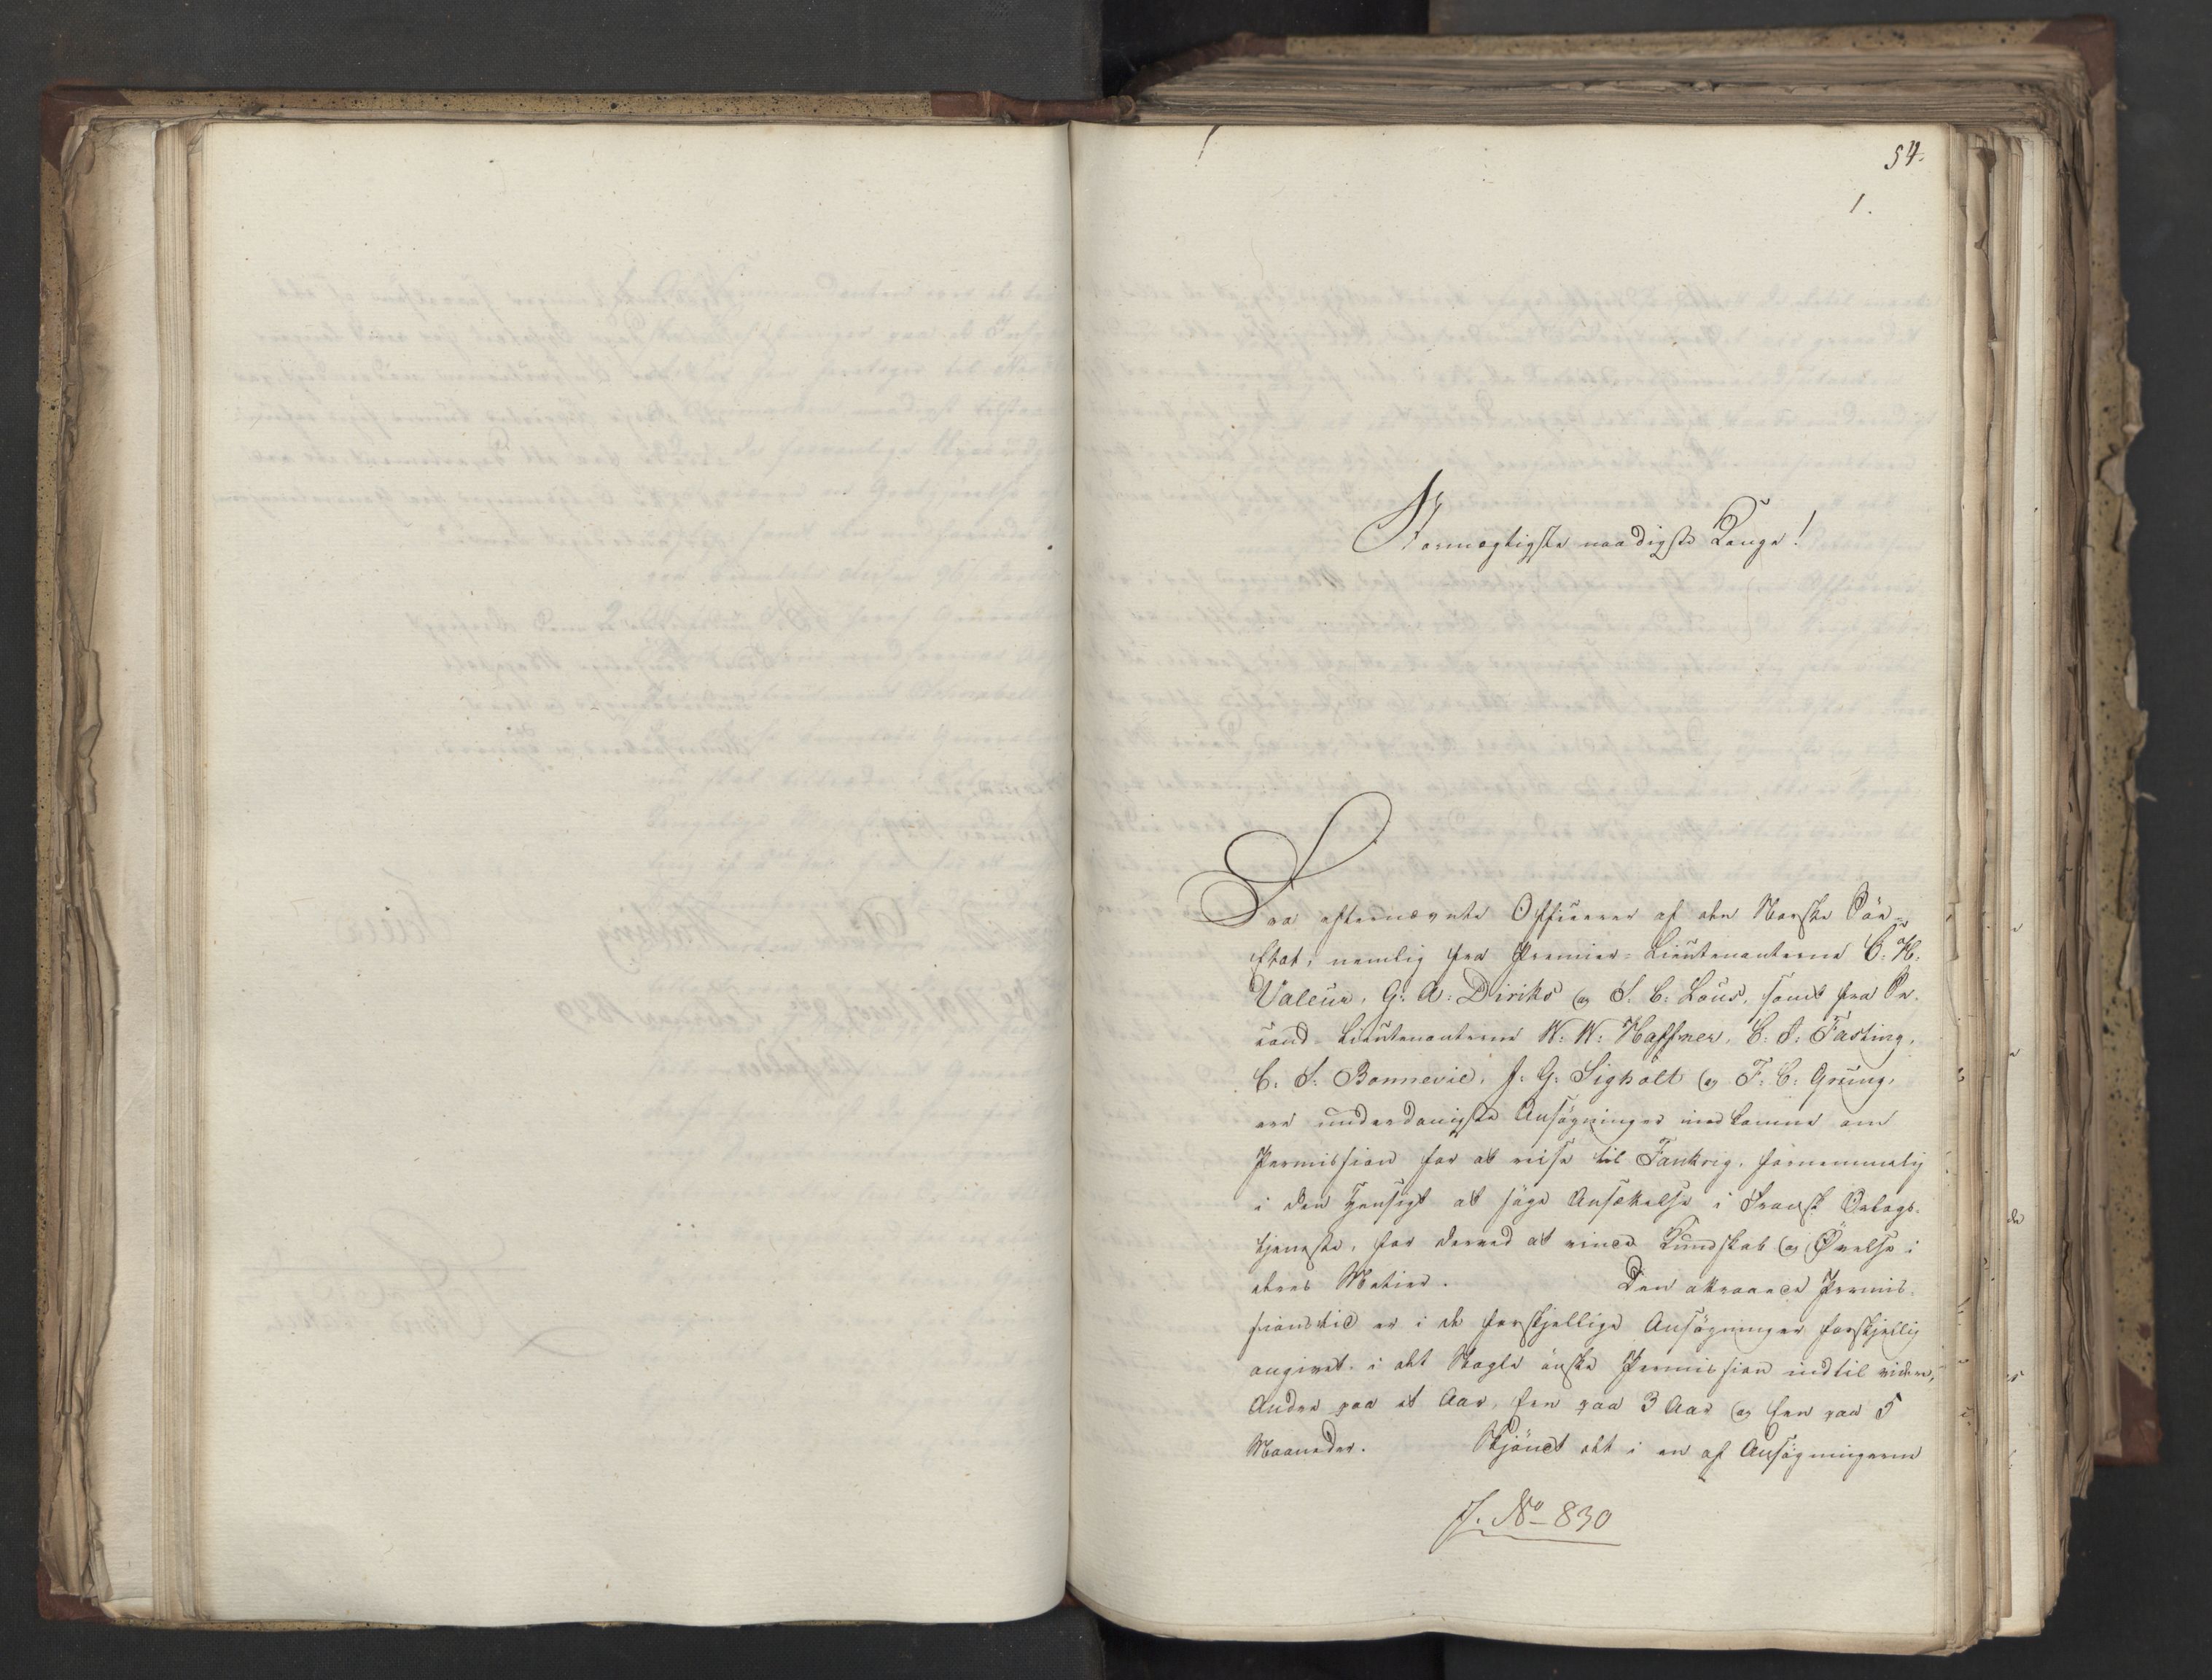 54.
1.
Stormægtigste naadigste Konge!
Fra efternævnte Officerer af den Norske Söe-
Etat, nemlig fra Premier-Lieutenanterne C. H.
Valeur, G. A. Diriks og S. C. Lous, samt fra Se-
cond-Lieutenanterne W. W. Haffner, C. J. Fasting,
C. S. Bonnevie, J. G. Sigholt og F. C. Grüng,
ere underdanigste Ansögninger indkomne om
Permission for at reise til Fankrig, fornemmelig
i den Hensigt at söge Ansættelse i Fransk Orlogs-
tjeneste, for derved at vinde Kundskab og Övelse i
deres Metier. Den attraaede Permis-
sionstid er i de forskjellige Ansögninger forskjellig
angivet, i det Nogle önske Permission indtil videre,
Andre paa et Aar, Een paa 3 Aar og Een paa 5
Maaneder. Skjöndt det i en af Ansögningerne
J. No 830